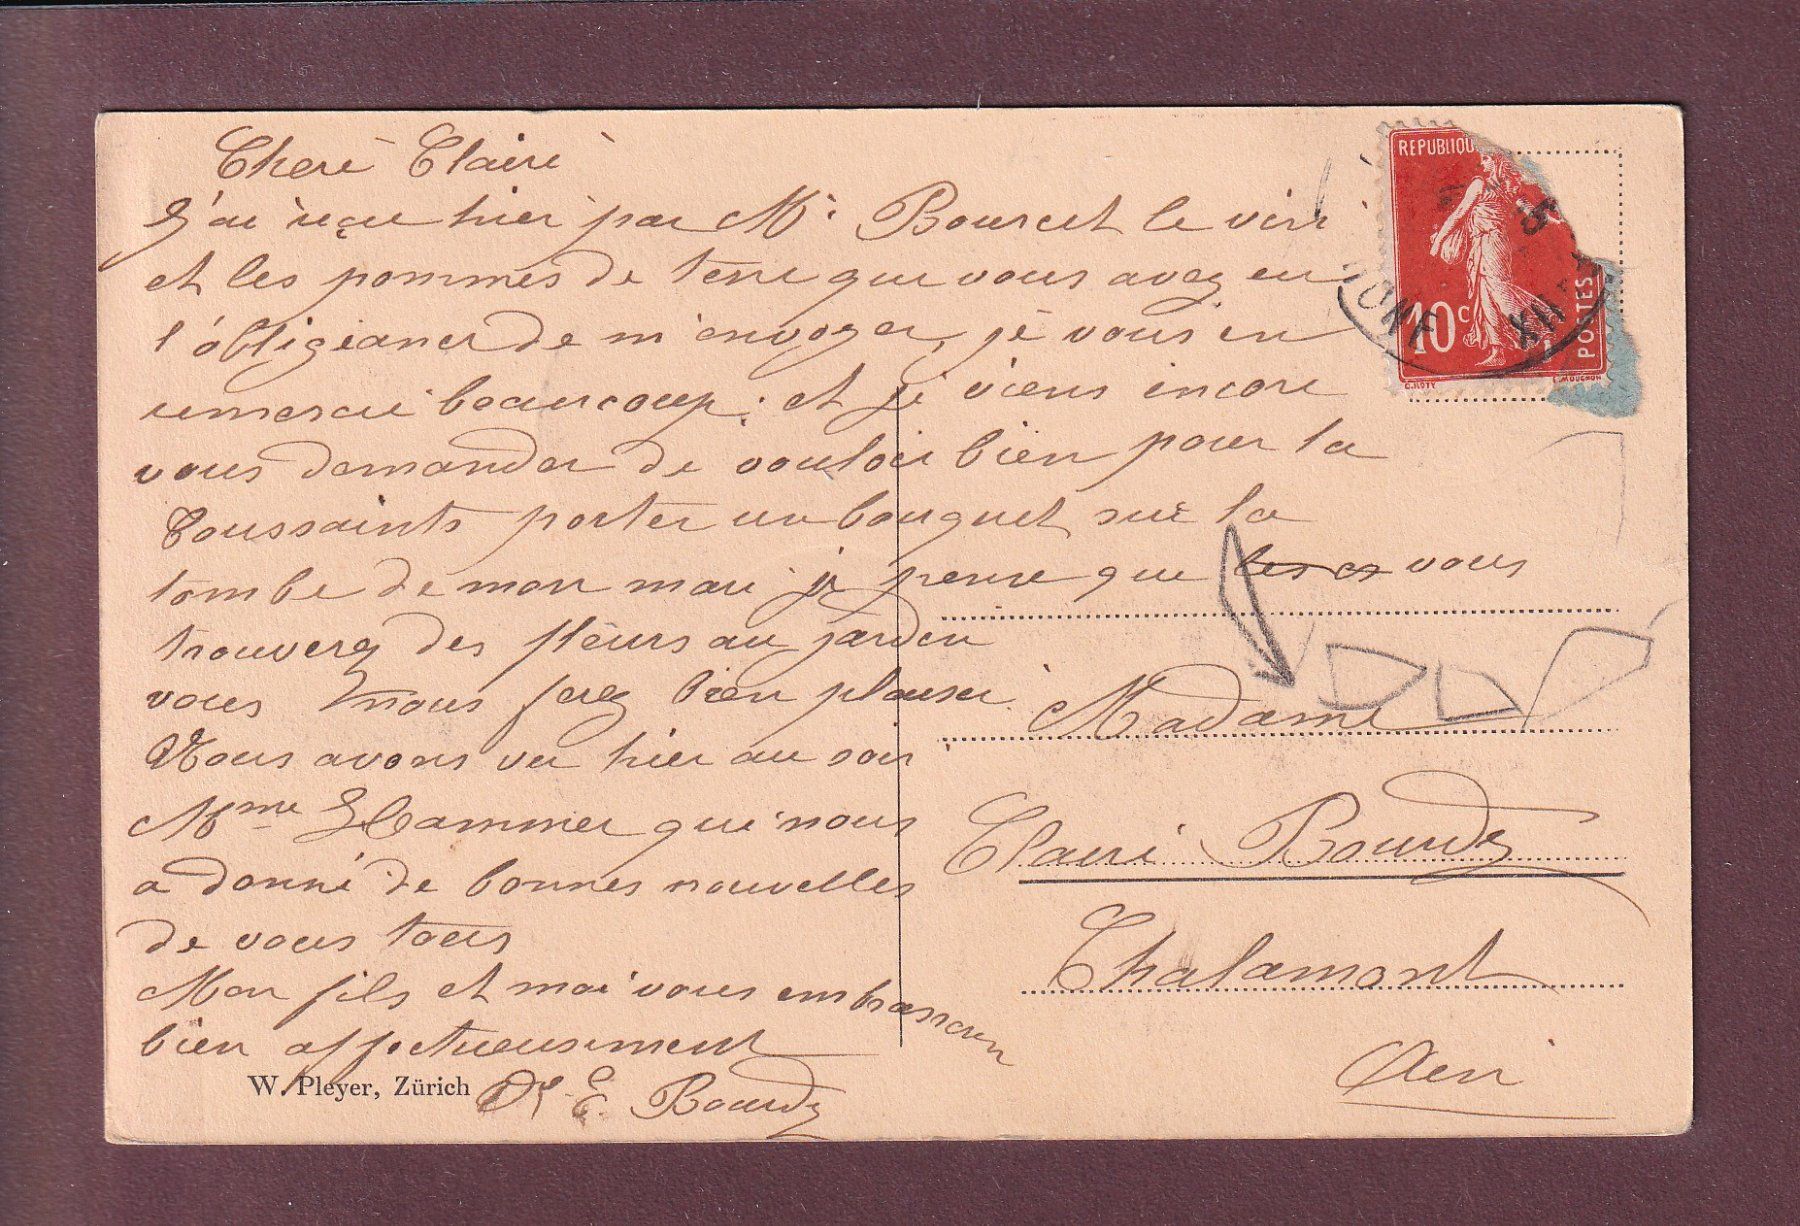 Chère Claire
J'ai reçu hier par Mr Bourcet le vin
et les pommes de terre que vous avez eu
l'obligeance de m'envoyer, je vous en
remercie beaucoup; et je viens encore
vous demander de vouloir bien pour la
Toussaints porter un bouquet sur la
tombe de mon mari je pense que vous
trouverez des fleurs au jarden
vous nous ferez bien plaisir
Nous avons vu hier au soir
Mme Hammer qui nous
a donné de bonnes nouvelles
de vous tous
Mon fils et moi vous embrassons
bien affectueusement
E. Bourdy
W. Pleyer, Zürich
REPUBLIQU
10c
POSTES
O.ROTY
E.MOUCHON
5
XII
RHONE
à Madame
Claire Bourdy
Chalamont
Ain